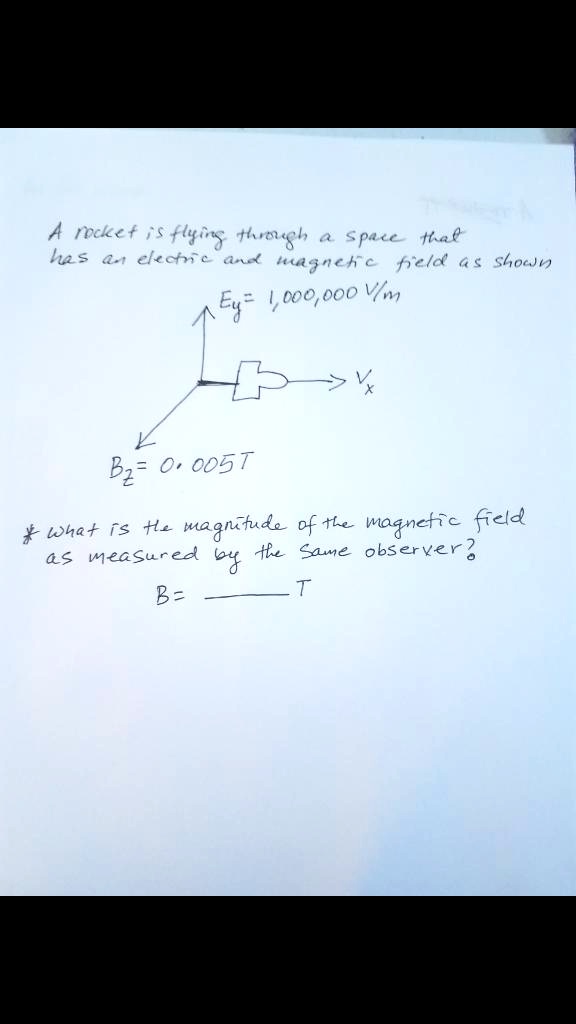 A rocket is flying through a space that
has an electric and magnetic field as shown
Ey = 1,000,000 V/m
Vx
Bz = 0.005T
* what is the magnitude of the magnetic field
as measured by the same observer?
B = ____ T